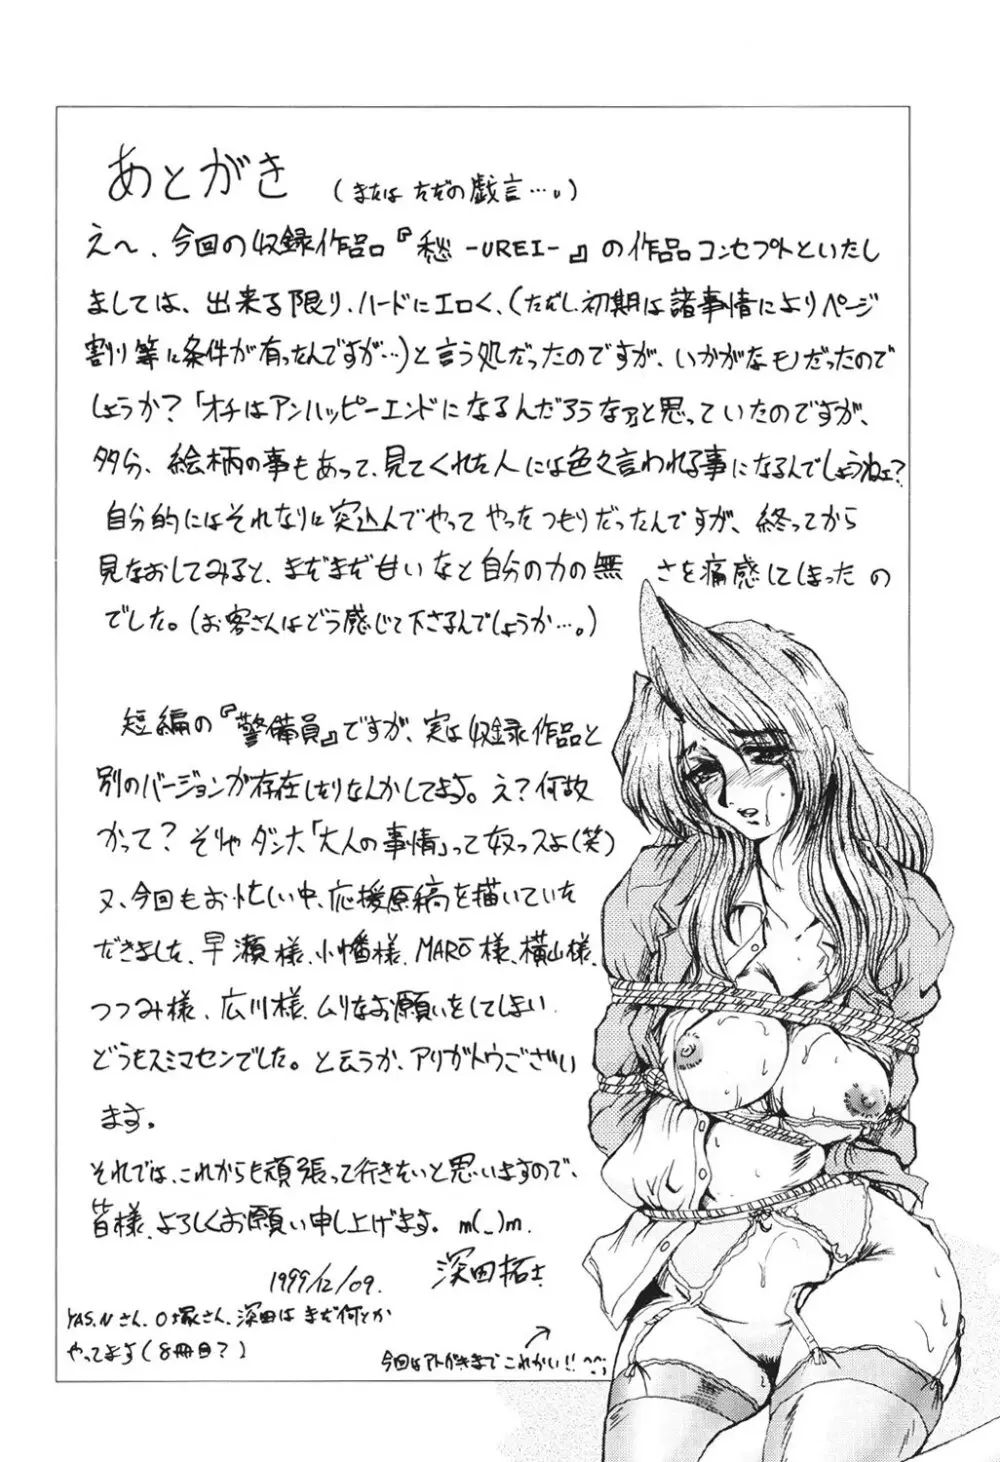 あとがき（またはただの戯言…。）
えー、今回の収録作品『愁-UREI-』の作品コンセプトといたし
ましては、出来る限り、ハードにエロく、（ただし初期は諸事情によりページ
割り等に条件が有ったんですが…）と言う処だったのですが、いかがなモノだったので
しょうか？「オチはアンハッピーエンドになるんだろうなァと思っていたのですが、
多分、絵柄の事もあって、見てくれた人には色々言われる事になるんでしょうねェ？
自分的にはそれなりに突込んでやってやったつもりだったんですが、終ってから
見なおしてみると、まだまだ甘いなと自分の力の無さを痛感してしまったの
でした。（お客さんはどう感じて下さるんでしょうか…。）
短編の『警備員』ですが、実は収録作品と
別のバージョンが存在したりなんかしてます。え？何故
かって？そりゃダンナ「大人の事情」って奴っスよ（笑）
又、今回もお忙しい中、応援原稿を描いていた
だきました、早瀬様、小幡様、MARO様、横山様、
つつみ様、広川様、ムリなお願いをしてしまい
どうもスミマセンでした。と云うか、アリガトウござい
ます。
それでは、これからも頑張って行きたいと思いますので、
皆様、よろしくお願い申し上げます。m(_)m.
1999/12/09. 深田拓士
YAS.Nさん、O塚さん、深田はまだ何とか
やってます（8冊目？）
今回はアトがきまでこれかい!!